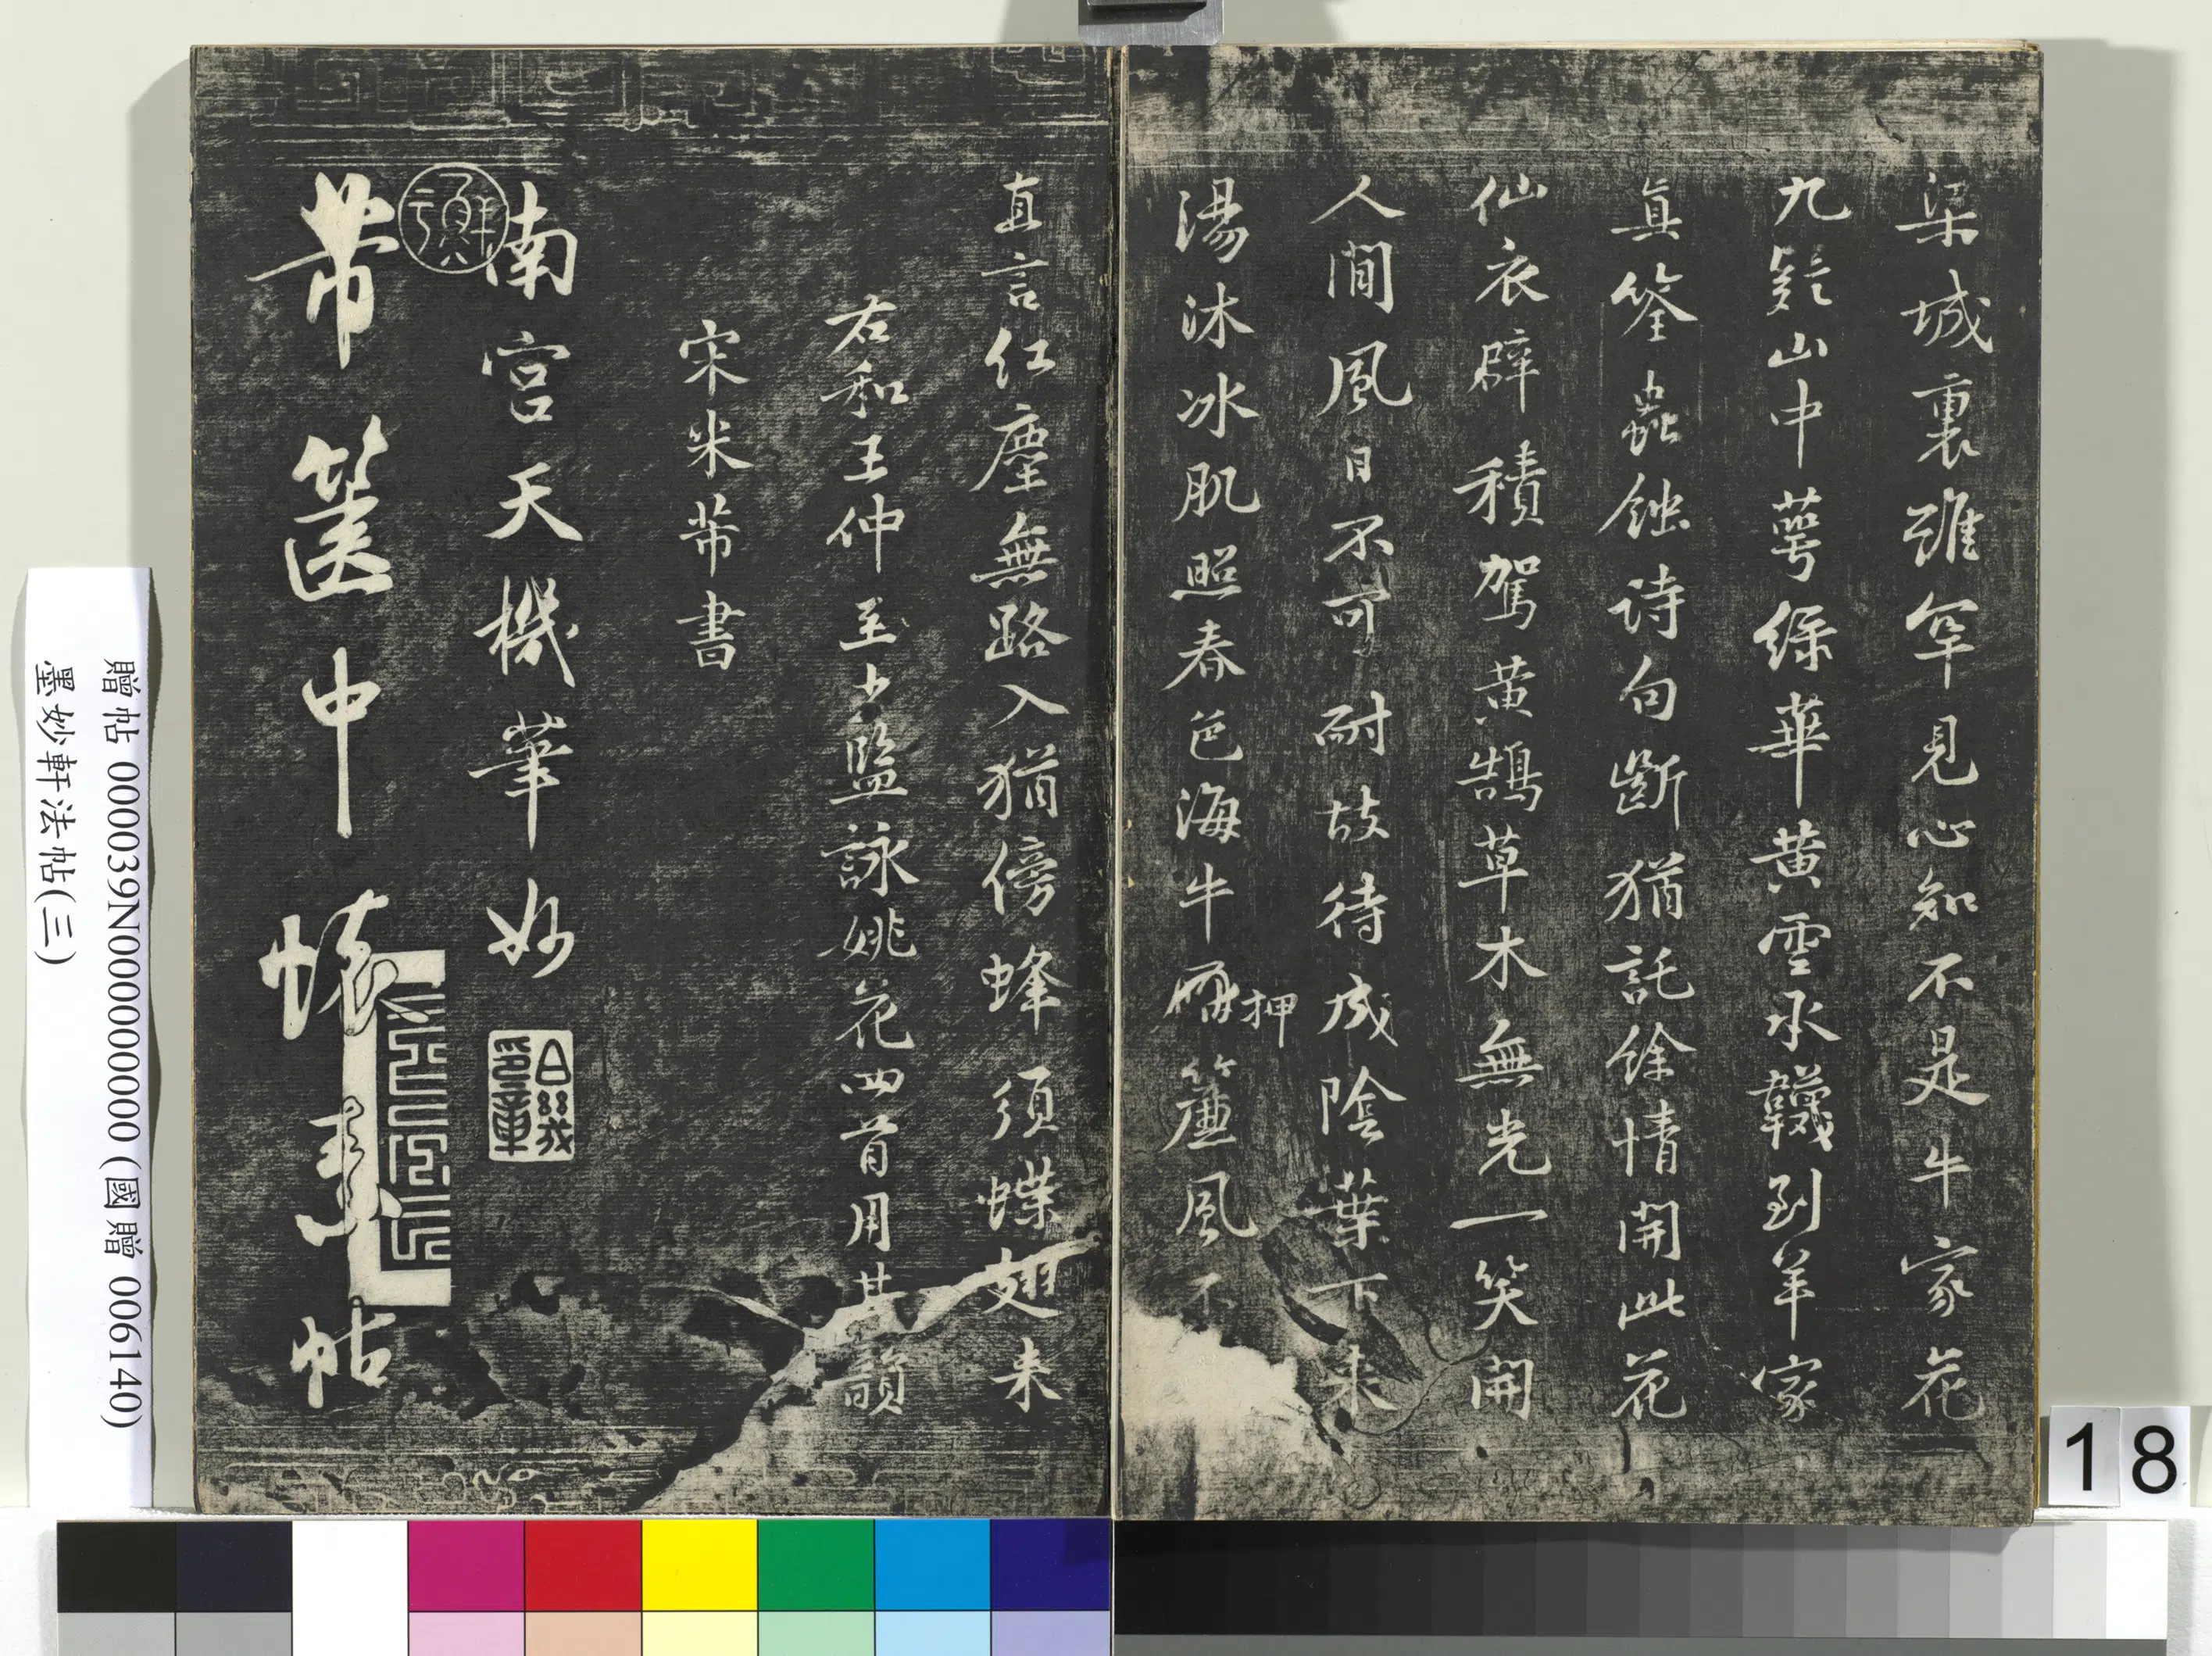 梁城裏雖罕見心知不是牛家花
九疑山中萼綠華黃雲承韈到羊家
真筌蟲蝕詩句斷猶託餘情開此花
仙衣襞積駕黃鵠草木無光一笑開
人間風日不可耐故待成陰葉下來
湯沐冰肌照春色海牛押簾風不
直言紅塵無路入猶傍蜂須蝶翅來
右和王仲至少監詠姚花四首用其韻
宋米芾書
南宮天機筆妙
芾篋中懷素帖
贈帖 000039N000000000000 (國贈 006140)
墨妙軒法帖(三)
18